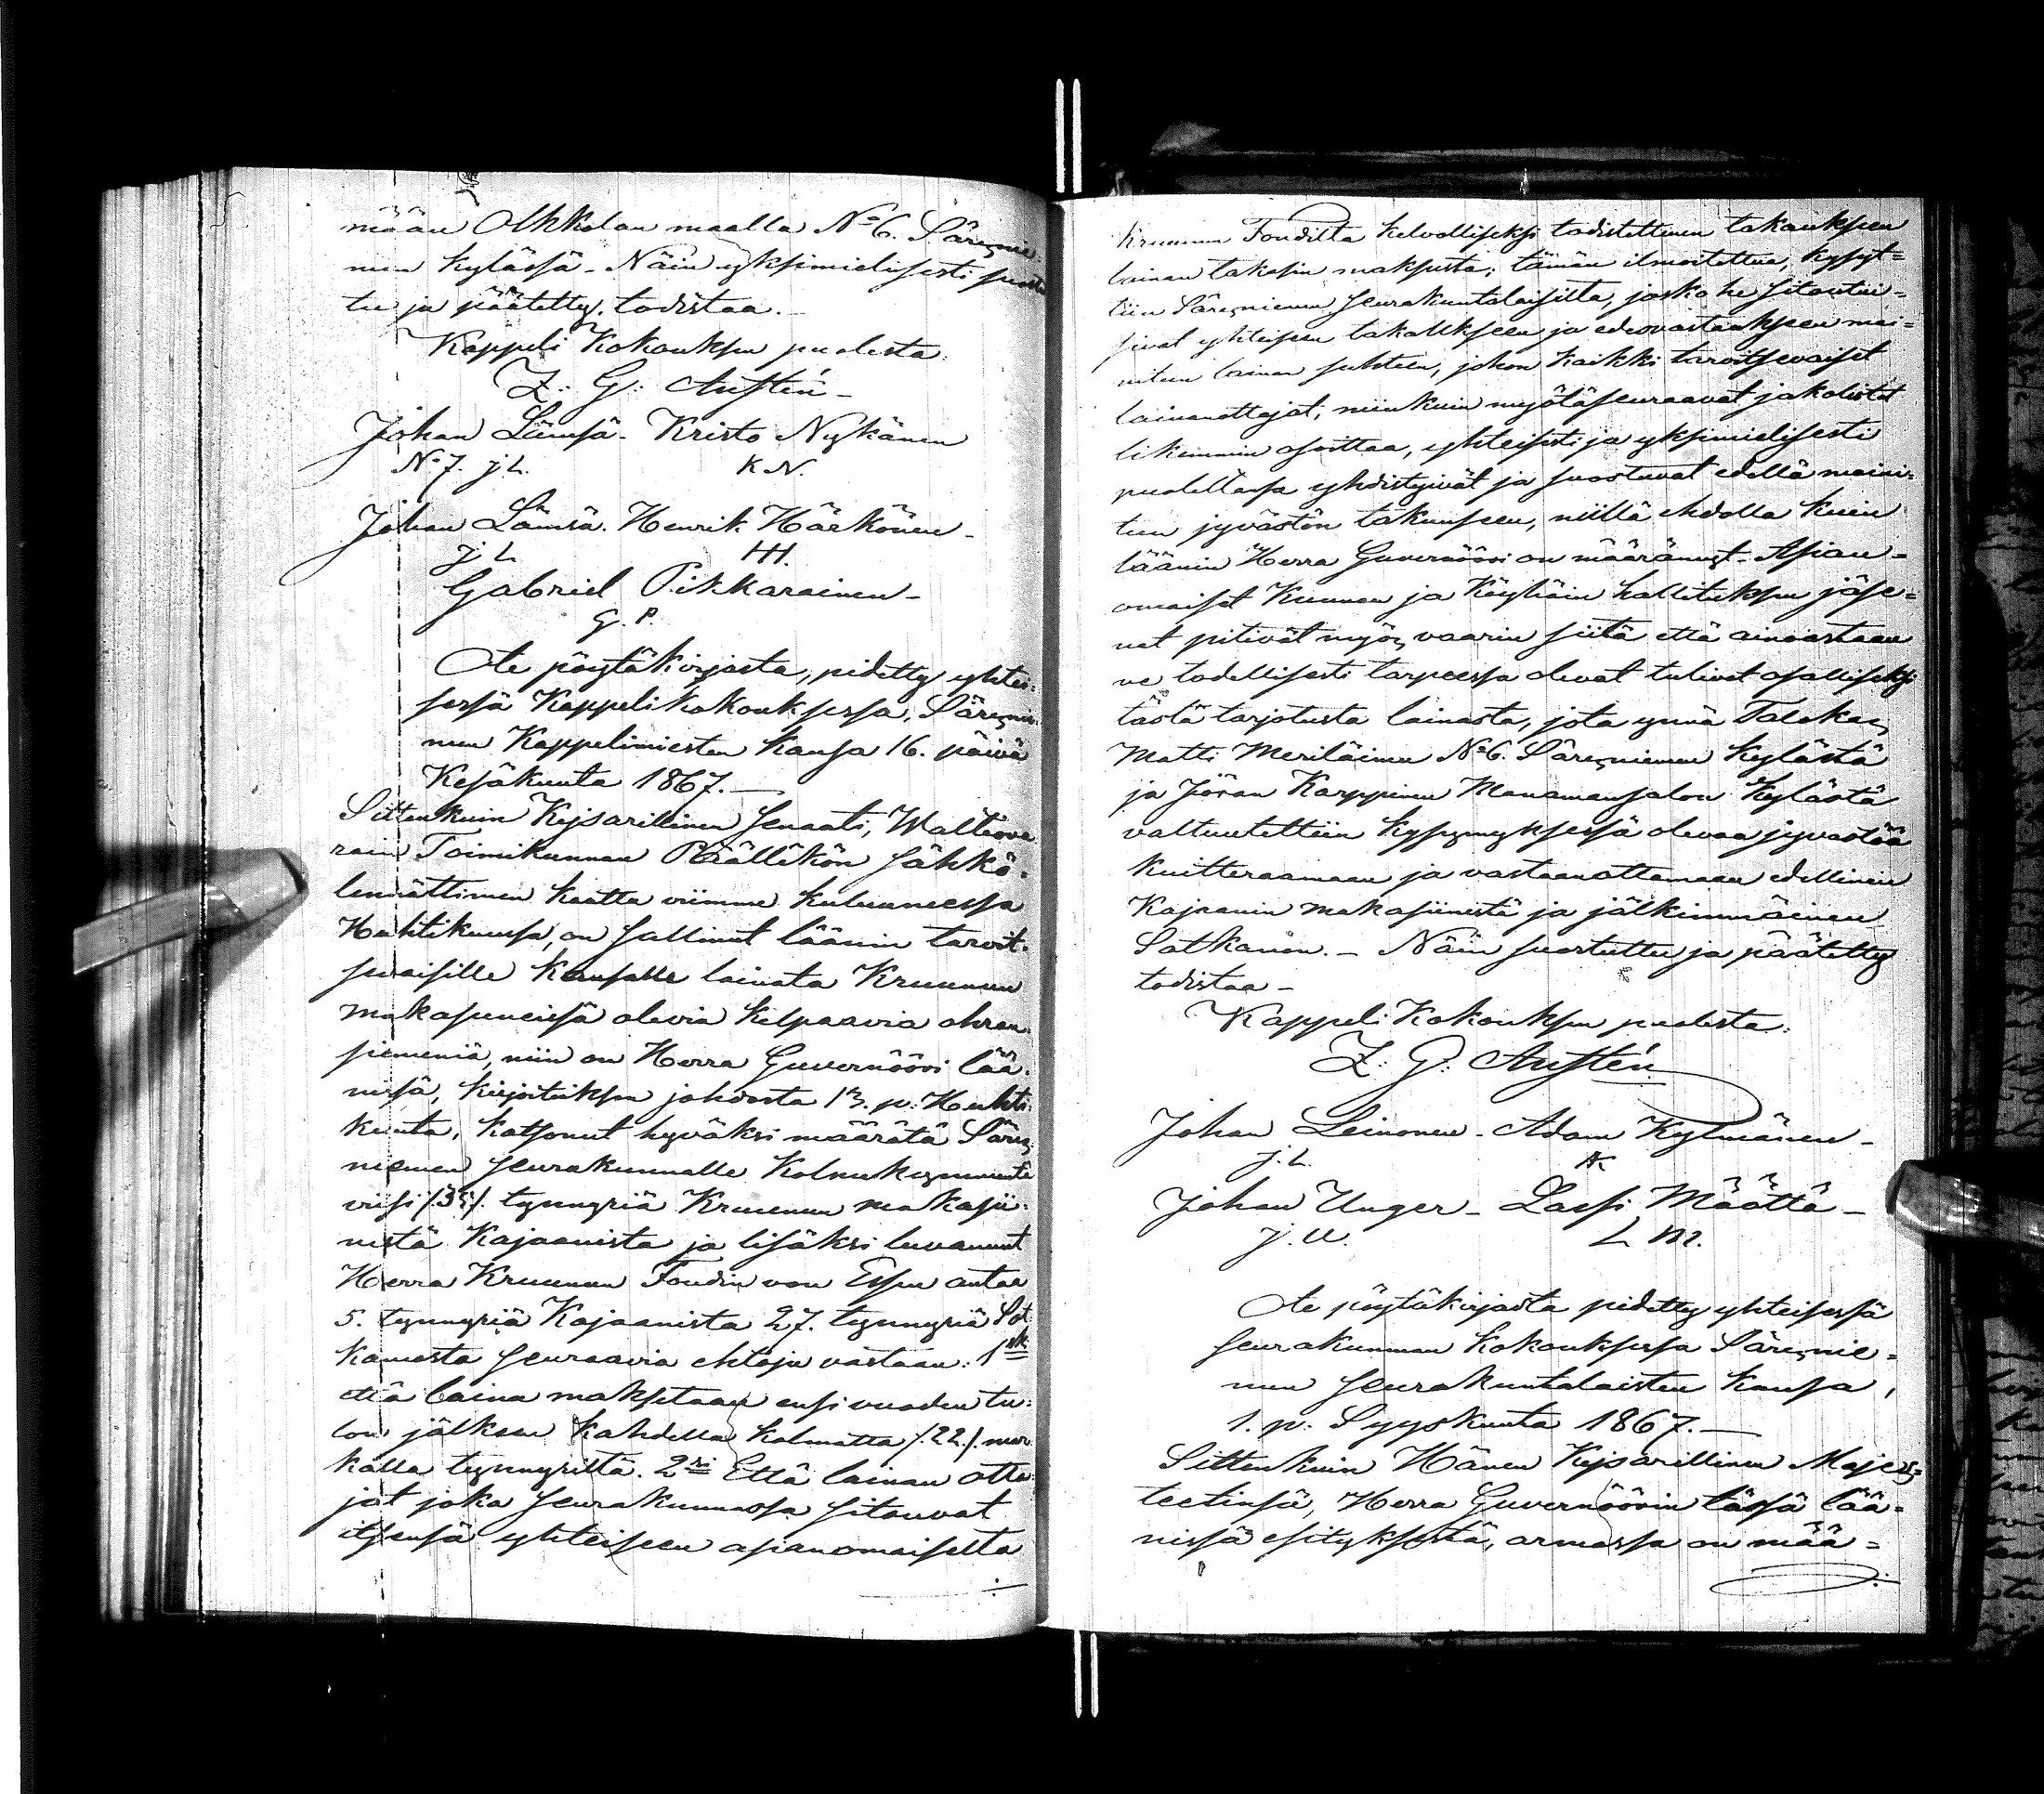 mään Olkkolan maalla No 6. Säresnie-
men kylässä - Näin yksimielisesti suostu
tu ja päätetty, todistaa. -
Kappeli Kokouksen puolesta:
Z: G: Austén -
Johan Lämsä. Kristo Nykänen
No 7. J. L. K. N.
Johan Lämsä. Henrik Härkönen -
J L HH.
Gabriel Pikkarainen -
G. P.
Ote pöytäkirjasta, pidetty yhtei-
sessä Kappelikokouksessa, Säresnie-
men Kappelimiesten kansa 16. päivä
Kesäkuuta 1867. -
Sittenkuin Kejsarillinen Senaati, Waltiova
rain Toimikunnan Päällikön sähkö-
lennättimen kautta viimme kuluneessa
Huhtikuussa, on sallinut läänin tarvit-
sevaisille kansalle lainata Kruunun
makasineissä olevia kelpaavia ohran
siemeniä, niin on Herra Guvernööri lää-
nissä, kirjoituksen johdosta 13. p: Huhti-
kuuta, katsonut hyväksi määrätä Säres-
niemen seurakunnalle Kolmekymmentä
viisi /:35:/ tynnyriä Kruunun makasii-
nistä Kajaanista ja lisäksi luvannut
Herra Kruunun Foudin von Essen antaa
5. tynnyriä Kajaanista 27. tynnyriä Sot
kamosta seuraavia ehtoja vastaan: 1sk
että laina maksetaan ensi vuoden tu-
lon jälkeen kahdella kolmatta /:22:/ mar
kalla tynnyriltä. 2ri Että lainan otta-
jat joka seurakunnassa sitouvat
itsensä yhteiseen asianomaiselta
Kruunun Foudilta kelvolliseksi todistettuun takaukseen
lainan takasin maksusta; tämän ilmoitettua, kysyt-
tiin Säresniemen seurakuntalaisilta, josko he sitoutui-
sivat yhteiseen takaukseen ja edesvastaukseen mai-
nitun lainan suhteen, johon kaikki tarvitsevaiset
lainanottajat, niinkuin myötäseuraavat jakolistat
likemmin osottaa, yhteisesti ja yksimielisesti
puolestansa yhdistyivät ja suostuvat edellä maini-
tun jyvästön takuuseen, niillä ehdolla kuin
läänin Herra Guvernööri on määrännyt. Asian-
omaiset Kunnan ja Köyhäin hallituksen jäse-
net pitivät myös vaarin siitä että ainoastaan
ne todellisesti tarpeessa olevat tulivat osallisiksi
tästä tarjotusta lainasta, jota ynnä Talokas
Matti Meriläinen No 6. Säresniemen kylästä
ja Jöran Karppinen Manamansalon kylästä
valtuutettiin kysymyksessä olevaa jyvästöä
kuitteraamaan ja vastaanottamaan edellinen
Kajaanin makasiinistä ja jälkimmäinen
Sotkamon. - Näin suostuttu ja päätetty
todistaa -
Kappeli Kokouksen puolesta:
Z: G: Austén.
Johan Leinonen - Adam Kylmänen -
J. L. AK
Johan Unger - Lassi Määttä -
J. U. L M.
Ote pöytäkirjasta pidetty yhteisessä
seurakunnan kokouksessa Säresnie-
men seurakuntalaisten kansa,
1. p: Syyskuuta 1867. -
Sittenkuin Hänen Kejsarillinen Majes-
teetinsä, Herra Guvernöörin tässä lää-
nissä esityksestä, armossa on mää-